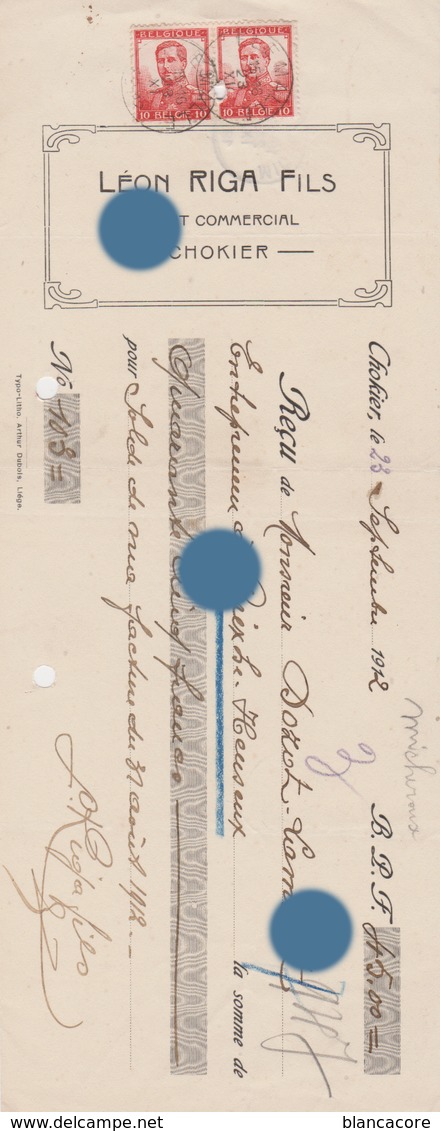 BELGIQUE BELGIQUE
10 BELGIE 10 10 BELGIE 10
LÉON RIGA FILS
T COMMERCIAL
CHOKIER
Chokier, le 23 Septembre 1912 B.P.F. 45.00=
Micheroux
Reçu de Monsieur
Entrepreneur à Heuseux la somme de
Quarante cinq francs
pour Solde de ma facture du 31 août 1912.
No 163=
L. Riga fils
Typo-Litho. Arthur Dubois, Liége.
blancacore